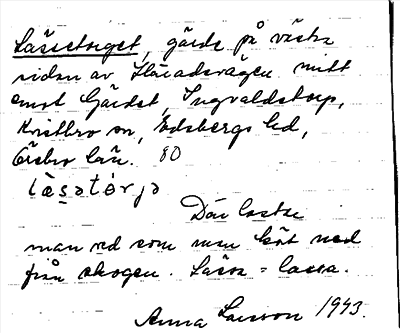 Lässetorget, gärde på västra
sidan av Häradsvägen mitt
emot Gärdet, Ingvaldstorp,
Kvistbro sn, Edsbergs hd,
Örebro län. 80
läsətòrjə
Där lastade
man ved som man kört ned
från skogen. Lässa = lassa.
Anna Larsson 1943.